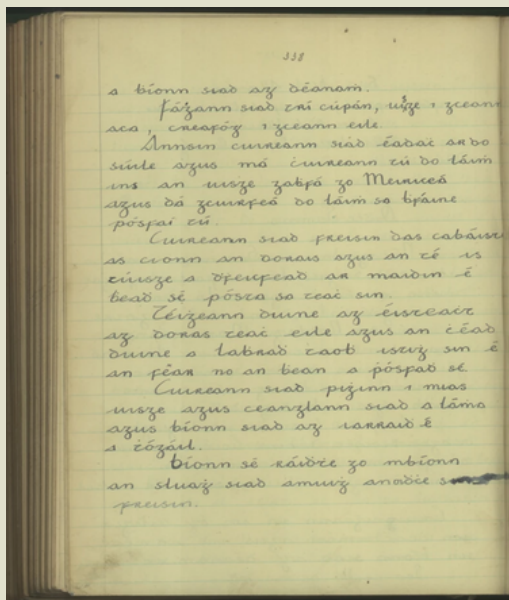 338
a bíonn siad ag déanaṁ.
Fáġann siad trí cúpán, uisge i gceann
aca, creafóg i gceann eile.
Annsin cuireann siad éadaċ ar do
súile agus má ċuireann tú do láiṁ
ins an uisge gaḃfá go Meiriceá
agus dá gcuirfeá do láiṁ sa ḃfáinne
pósfaí tú.
Cuireann siad freisin das cabáiste
as cionn an dorais agus an té is
túisge a ḋfeicfeaḋ ar maidin é
bead sé pósta sa teaċ sin.
Téiġeann duine ag éisteaċt
ag doras teaċ eile agus an ċéad
duine a laḃraḋ taoḃ istiġ sin é
an fear no an bean a ṗósfaḋ sé.
Cuireann siad piġinn i mias
uisge agus ceanglann siad a láṁa
agus bíonn siad ag iarraiḋ é
a tógáil.
Bíonn sé ráiḋte go mbíonn
an sluaġ siad amuiġ anoiḋċe
freisin.